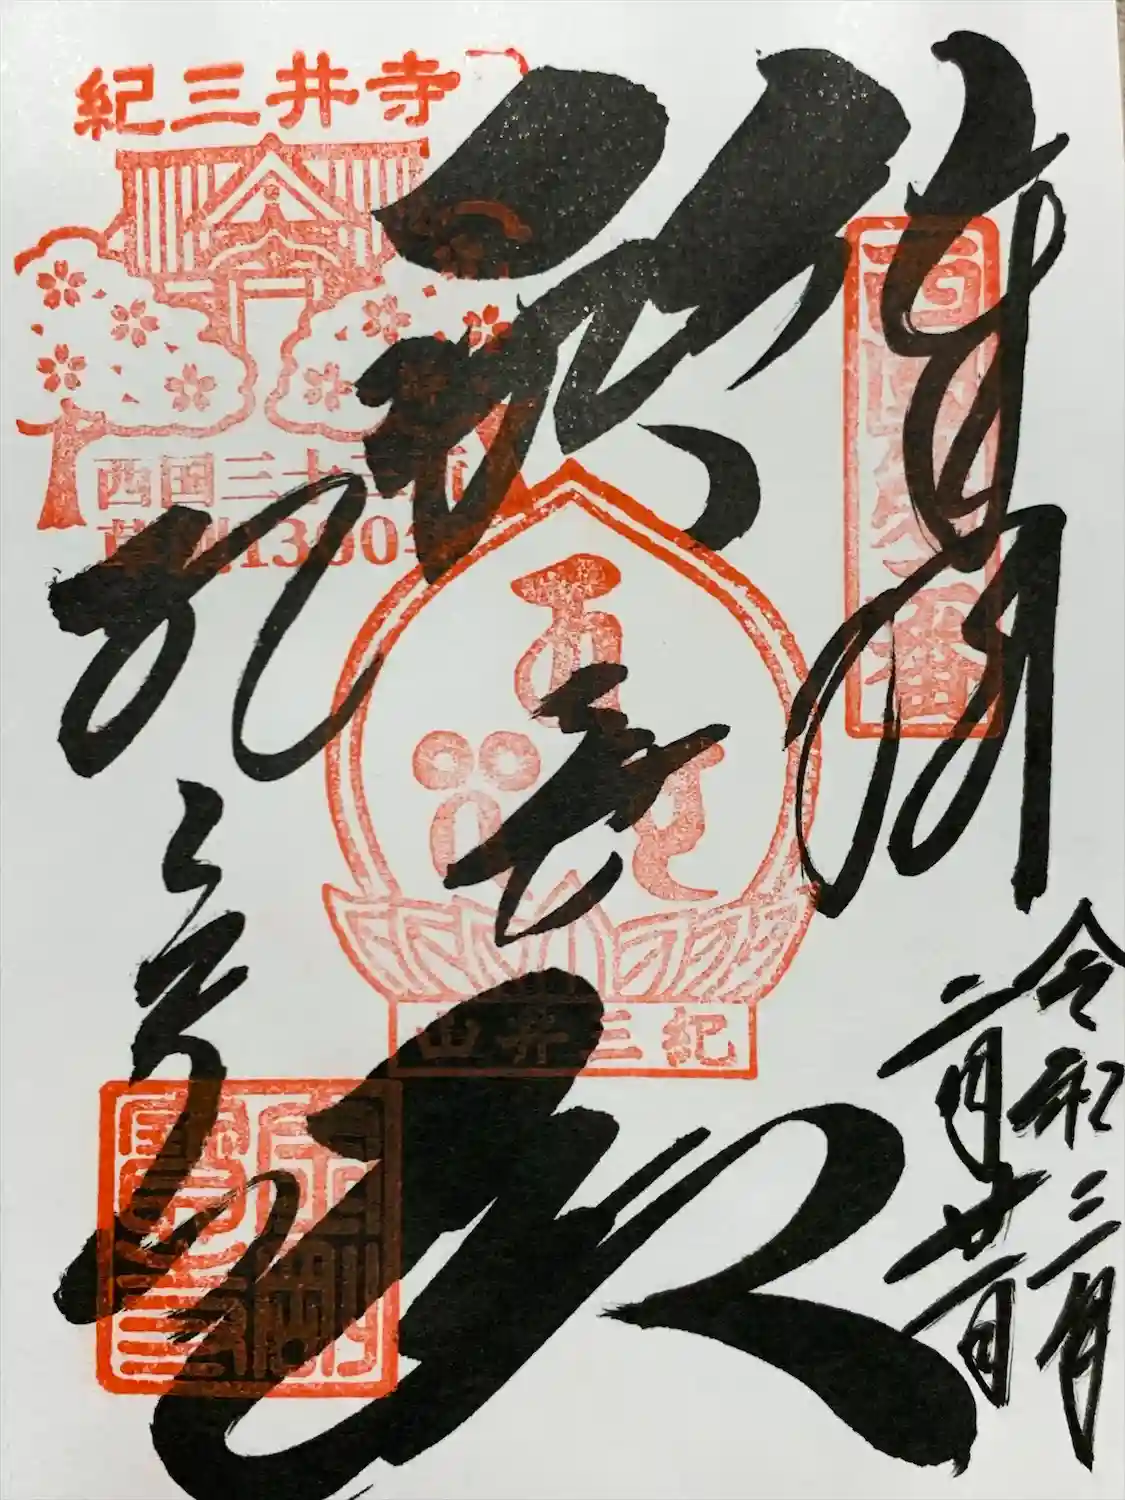 奉拝
西国第二番
令和三年
二月廿一日
救世殿
紀三井山
紀三井寺
西国三十三所
草創1300年
紀三井寺